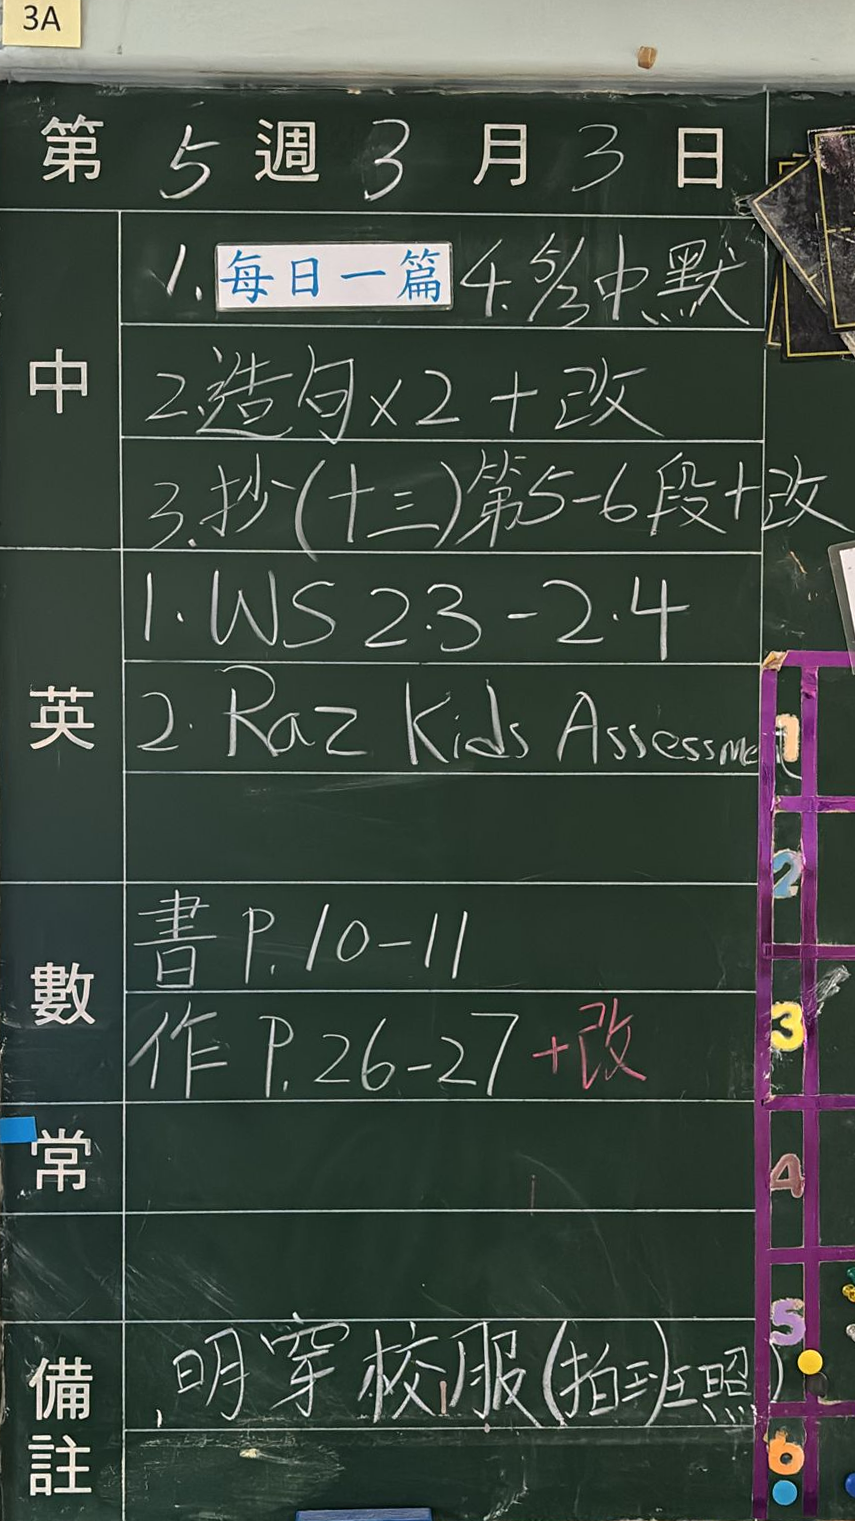 3A
第 5 週 3 月 3 日
中
1. 每日一篇 4. 5/3 中默
2. 造句×2 + 改
3. 抄(十三)第5-6段+改
英
1. WS 2.3-2.4
2. Raz Kids Assessment
數
書 P.10-11
作 P.26-27 +改
常
備註
明穿校服(拍班照)
1
2
3
4
5
6